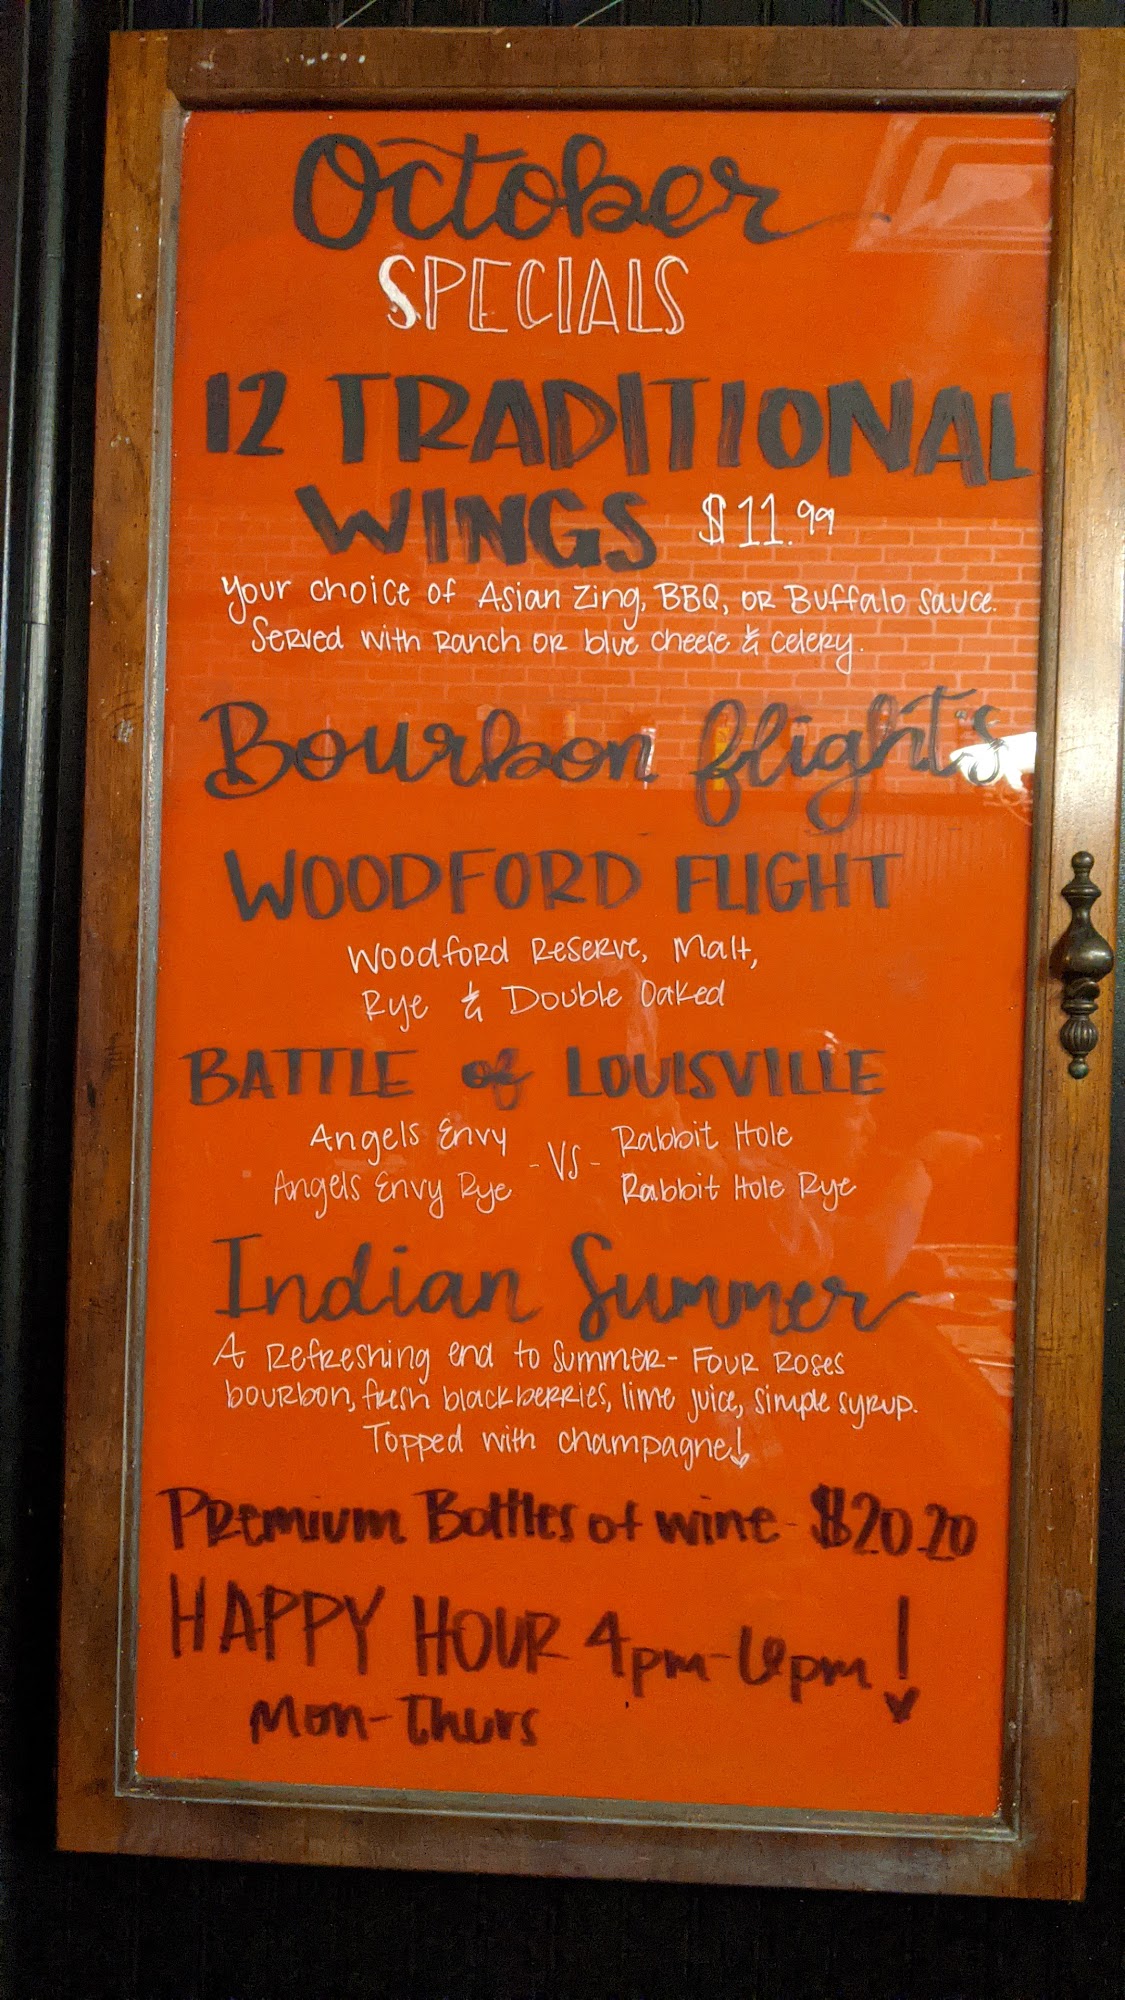 October
SPECIALS
12 TRADITIONAL
WINGS $11.99
Your choice of Asian Zing, BBQ, or Buffalo sauce.
Served with Ranch or blue cheese & celery.
Bourbon flights
WOODFORD FLIGHT
Woodford Reserve, Malt,
Rye & Double Oaked
BATTLE of LOUISVILLE
Angels Envy - VS - Rabbit Hole
Angels Envy Rye Rabbit Hole Rye
Indian Summer
A Refreshing end to Summer - Four Roses
bourbon, fresh blackberries, lime juice, simple syrup.
Topped with champagne!
Premium Bottles of wine - $20.20
HAPPY HOUR 4pm-6pm!
Mon-Thurs